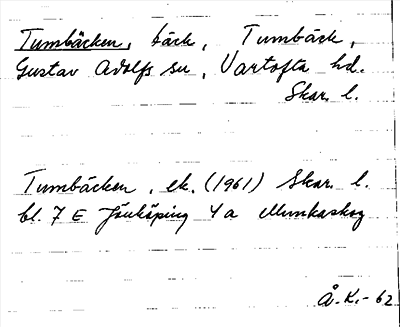 Tumbäcken, bäck, Tumbäck,
Gustav Adolfs sn, Vartofta hd.
Skar. l.
Tumbäcken, ek. (1961) Skar. l.
bl. 7 E Jönköping 4 a Munkaskog
Å. K. - 62